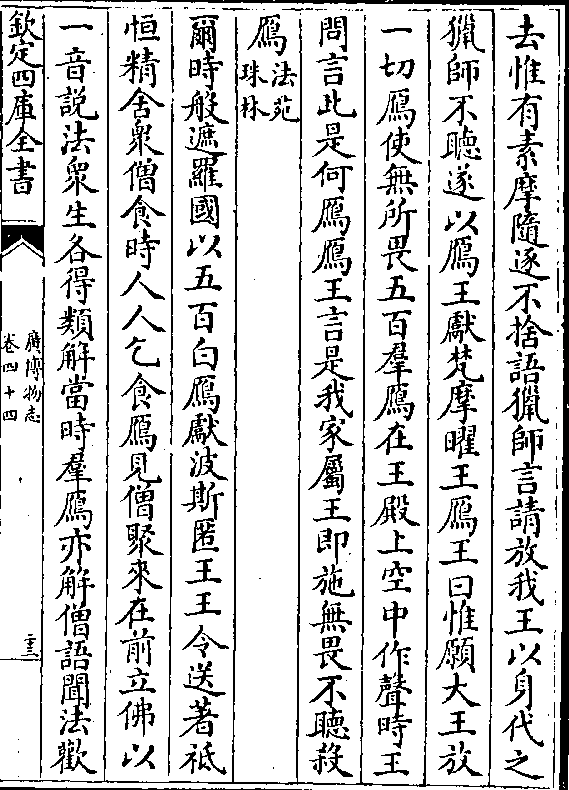 去惟有素摩隨逐不捨語獵師言請放我王以身代之
獵師不聽遂以鴈王獻梵摩曜王鴈王曰惟願大王放
一切鴈使無所畏五百羣鴈在王殿上空中作聲時王
問言此是何鴈鴈王言是我家屬王即施無畏不聽殺
鴈法苑
珠林
爾時般遮羅國以五百白鴈獻波斯匿王王令送著祗
恒精舍衆僧食時人人乞食鴈見僧聚來在前立佛以
一音説法衆生各得類解當時羣鴈亦解僧語聞法歡
欽定四庫全書
廣博物志
卷四十四
二十三